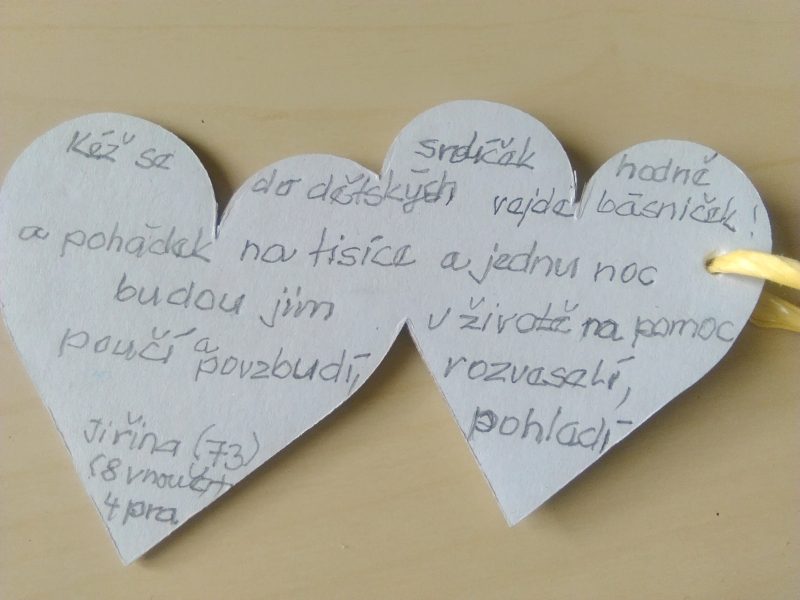 Kéž se do dětských srdíček vejde hodně básniček!
a pohádek na tisíce a jednu noc
budou jim v životě na pomoc
poučí a povzbudí, rozveselí,
pohladí
Jiřina (73)
(8 vnoučat
4 pra